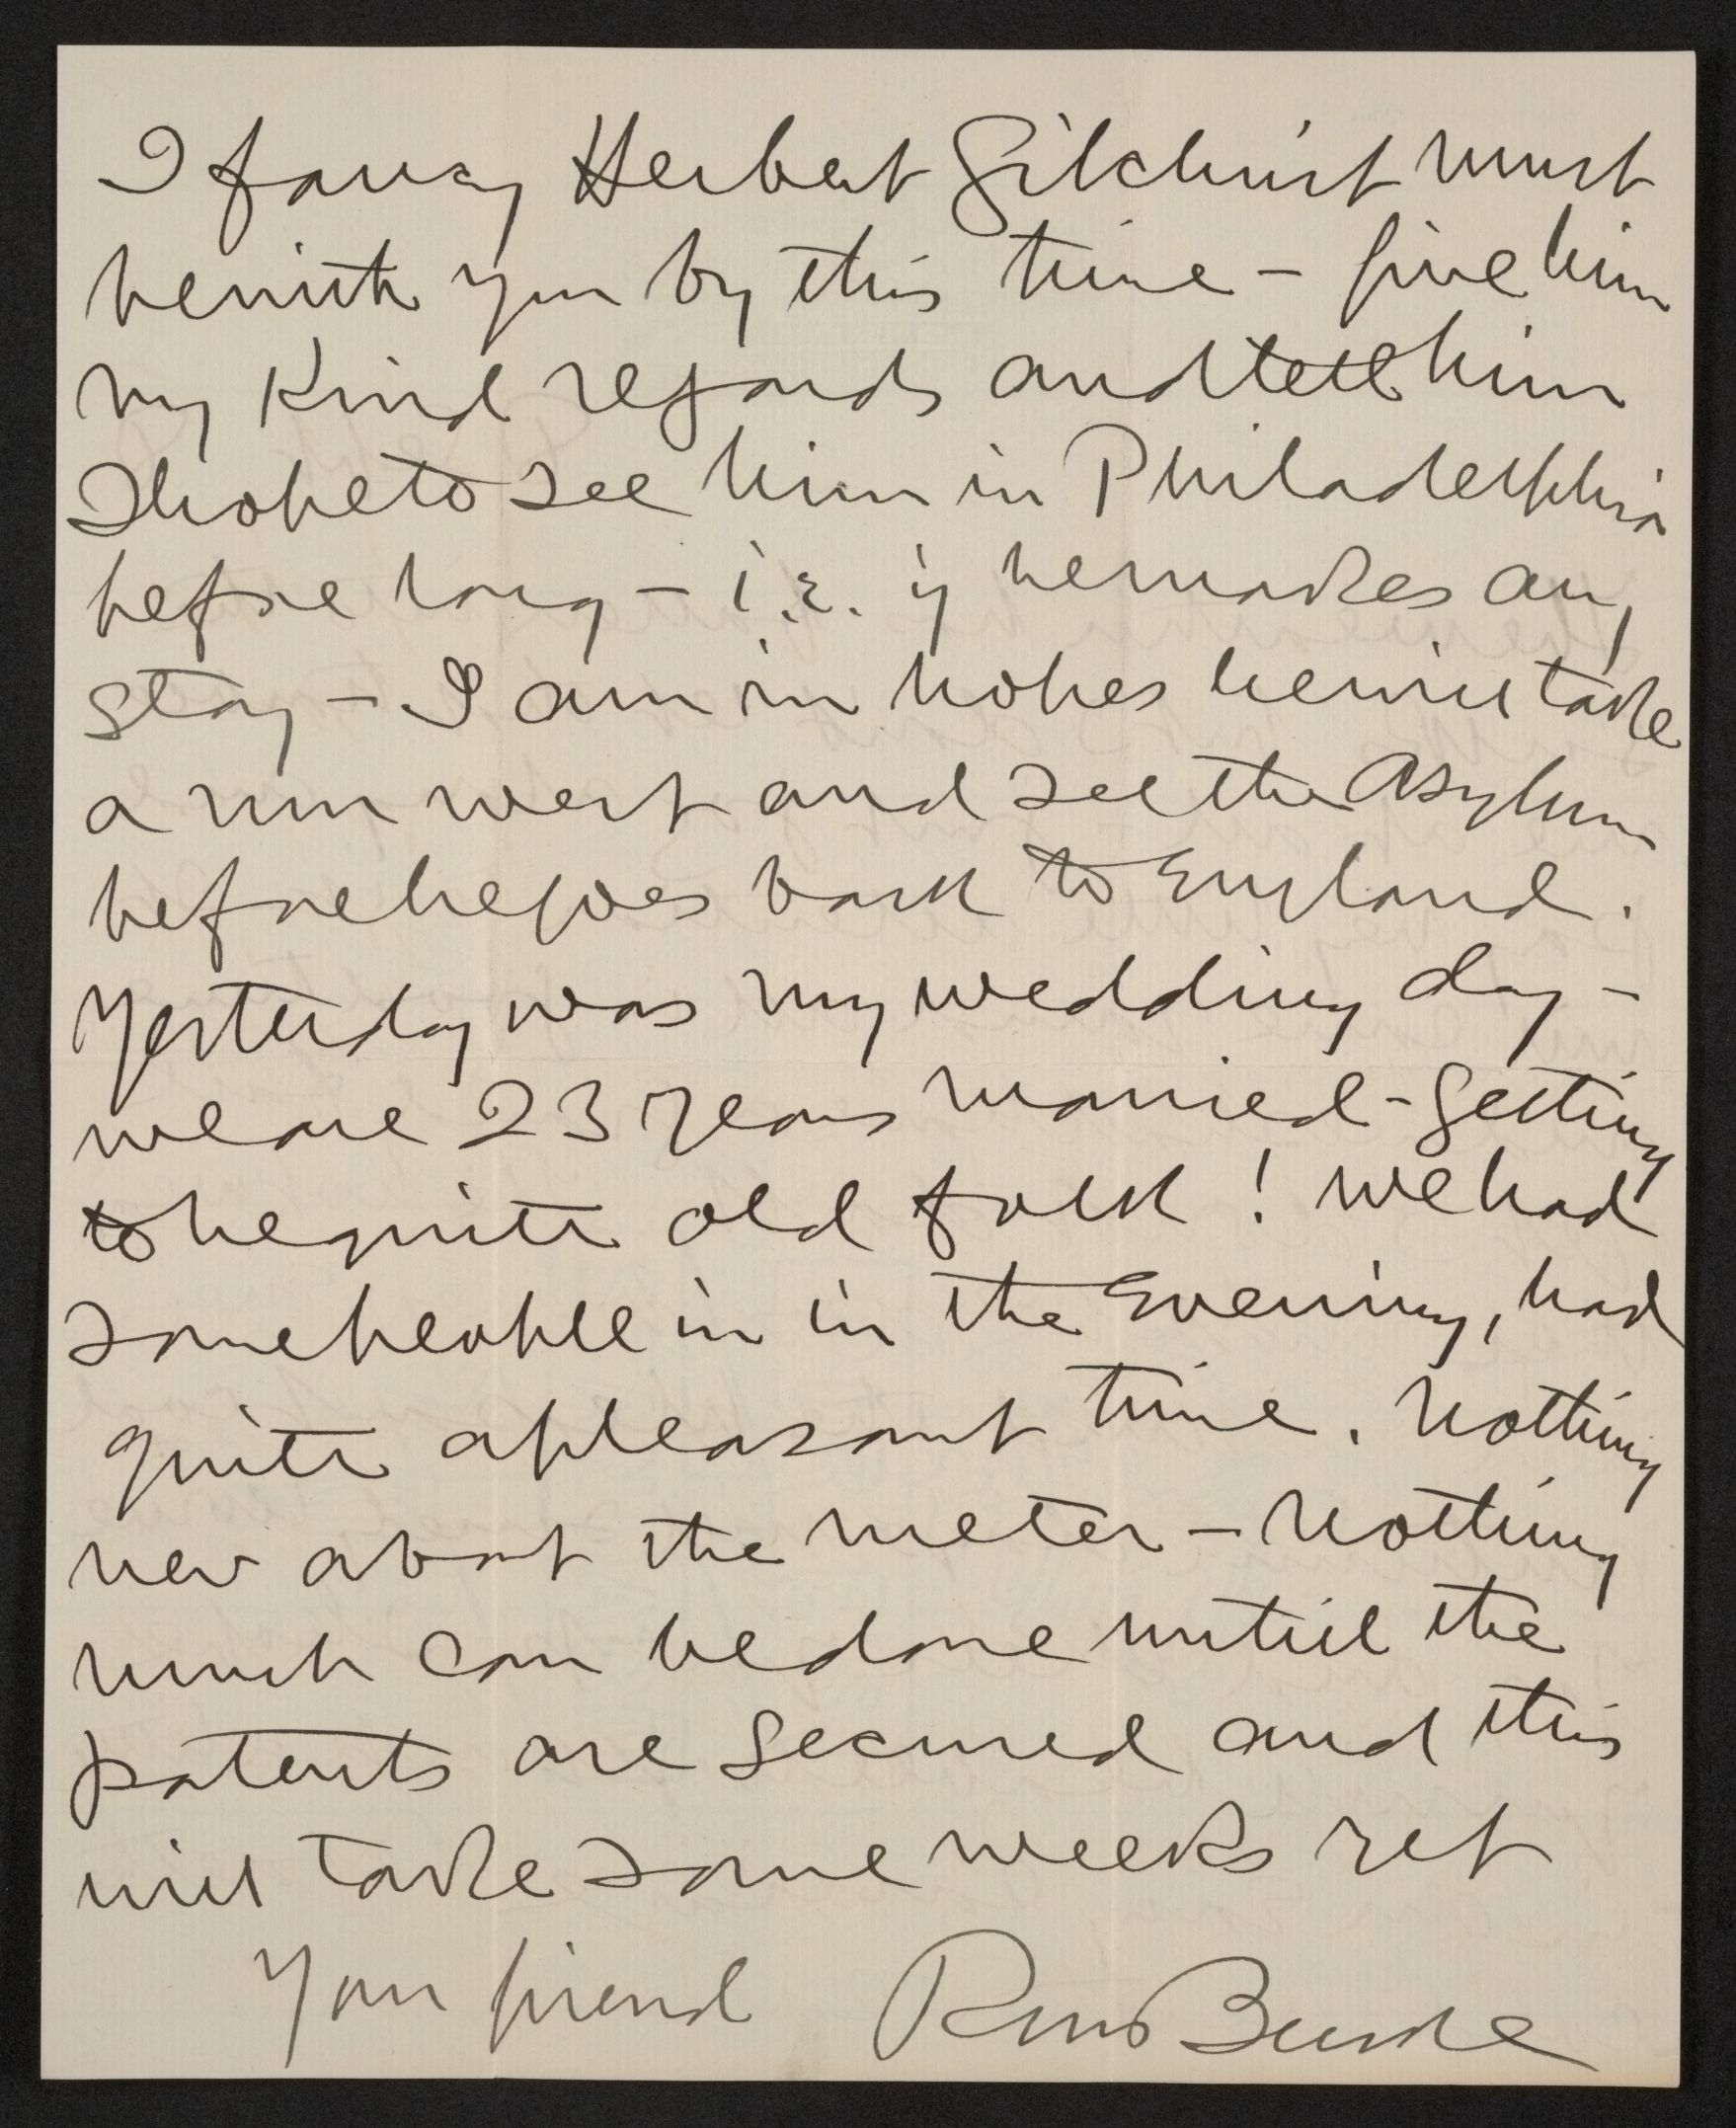 I fancy Herbert Gilchrist must
be with you by this time – give him
my kind regards and tell him
I hope to see him in Philadelphia
before long – i.e. if he makes any
stay – I am in hopes he will take
a run west and see the Asylum
before he goes back to England.
Yesterday was my wedding day –
we are 23 years married – getting
to be quite old folk! We had
some people in in the evening, had
quite a pleasant time. Nothing
new about the meter – nothing
much can be done until the
patents are secured and this
will take some weeks yet
Your friend R M Bucke